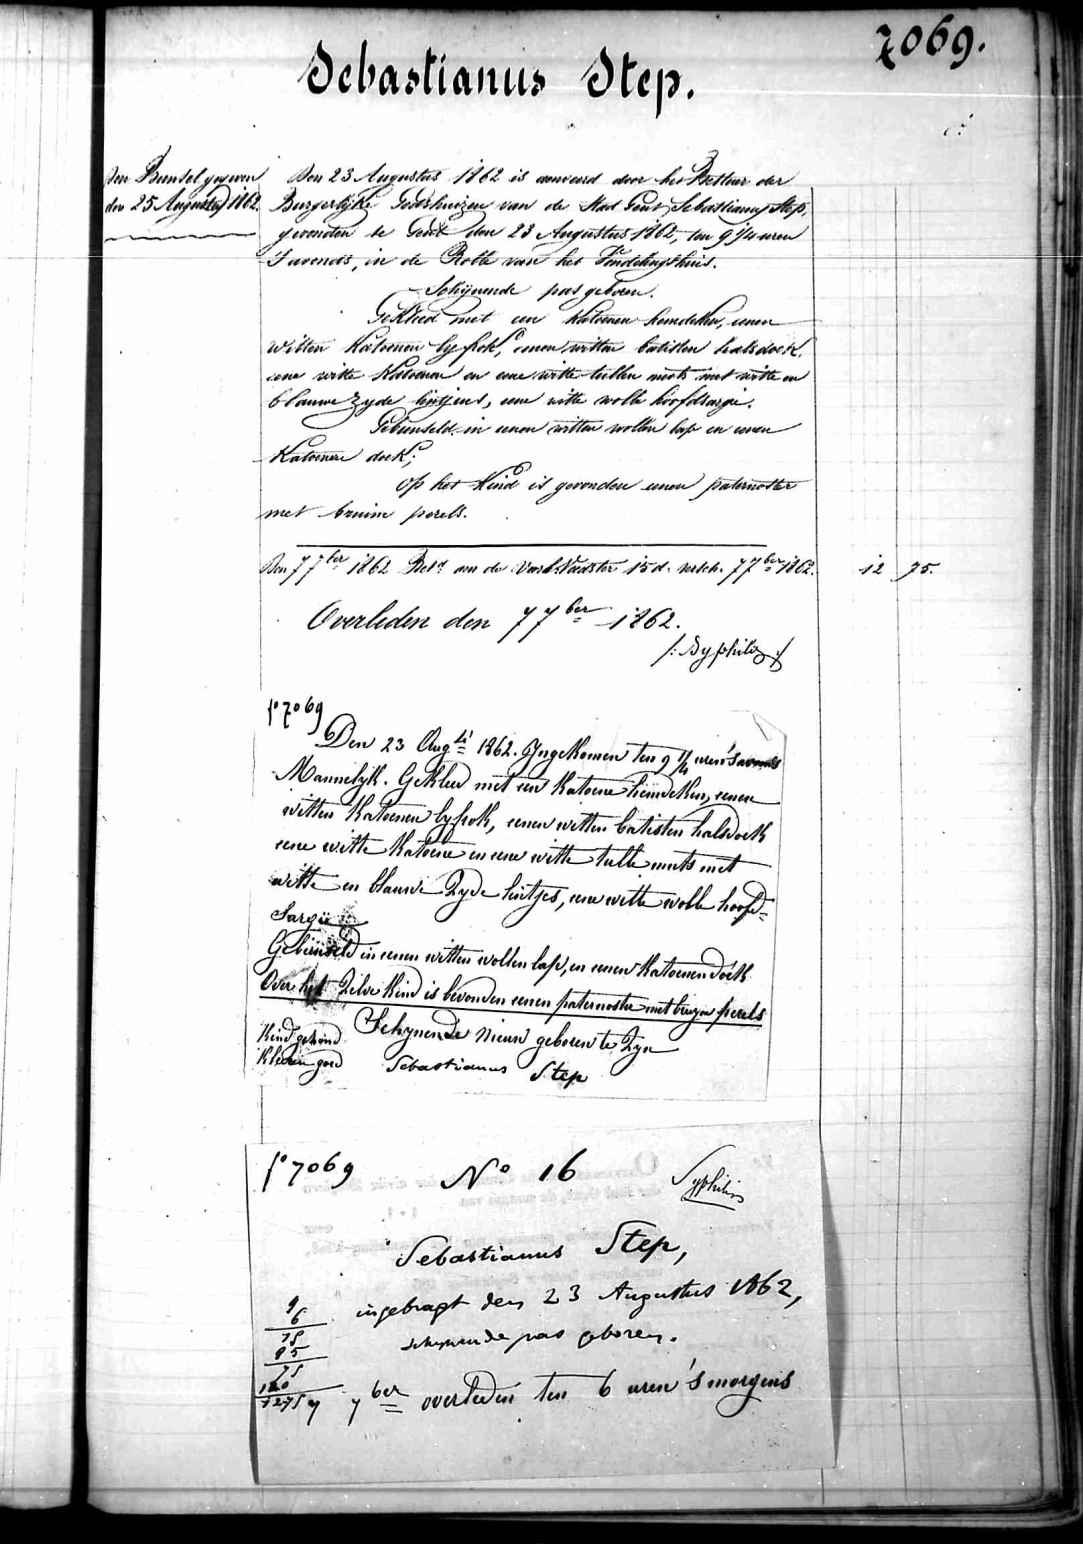 7069.
Sebastianus Step.
Den Bunsel gegeven
den 25 Augusty 1862.
Den 23 Augustus 1862 is aanveerd door het Bestuur der
Burgerlyke Godshuizen van de Stad Gent, Sebastianus Step,
gevonden te Gent den 23 Augustus 1862, ten 9 1/4 uren
s'avonds, in de Rolle van het Vondelingshuis.
Schynende pas geboren.
Gekleed met een katoenen hemdeken, eenen
witten katoenen lyfrok, eenen witten batisten halsdoek,
eene witte katoenen en eene witte tullen muts met witte en
blauwe zyde lintjens, eene witte wolle hoofdsargie.
Gebunseld in eenen witten wollen lap en eenen
katoenen doek;
Op het kind is gevonden eenen paternoster
met bruine perels.
Den 7 7ber 1862 Betd aan de Voedster 15 d. 7 7ber 1862. 12 75.
Overleden den 7 7ber 1862.
/: Syphilis :/
fo 7069
Den 23 Augti 1862. Yngekomen ten 9 1/4 uren 's avonds
Mannelyk. Gekleed met een katoene hemdeken, eenen
witten katoenen lyfrok, eenen witten batisten halsdoek
eene witte katoene en eene witte tulle muts met
witte en blauwe Zyde lintjes, eene witte wolle hoofd=
Sargie
Gebunseld in eenen witten wollen lap, en eenen katoenen doek
Over het Zelve kind is bevonden eenen paternoster met bruyne perels
Schynende nieuw geboren te Zyn
Kind gezond
Kleeren goed
Sebastianus Step
fo 7069 No 16 Syphilis
Sebastianus Step,
ingebragt den 23 Augustus 1862,
schynende pas geboren.
9
6
15
85
75
120
1275
7 7ber overleden ten 6 uren 's morgens